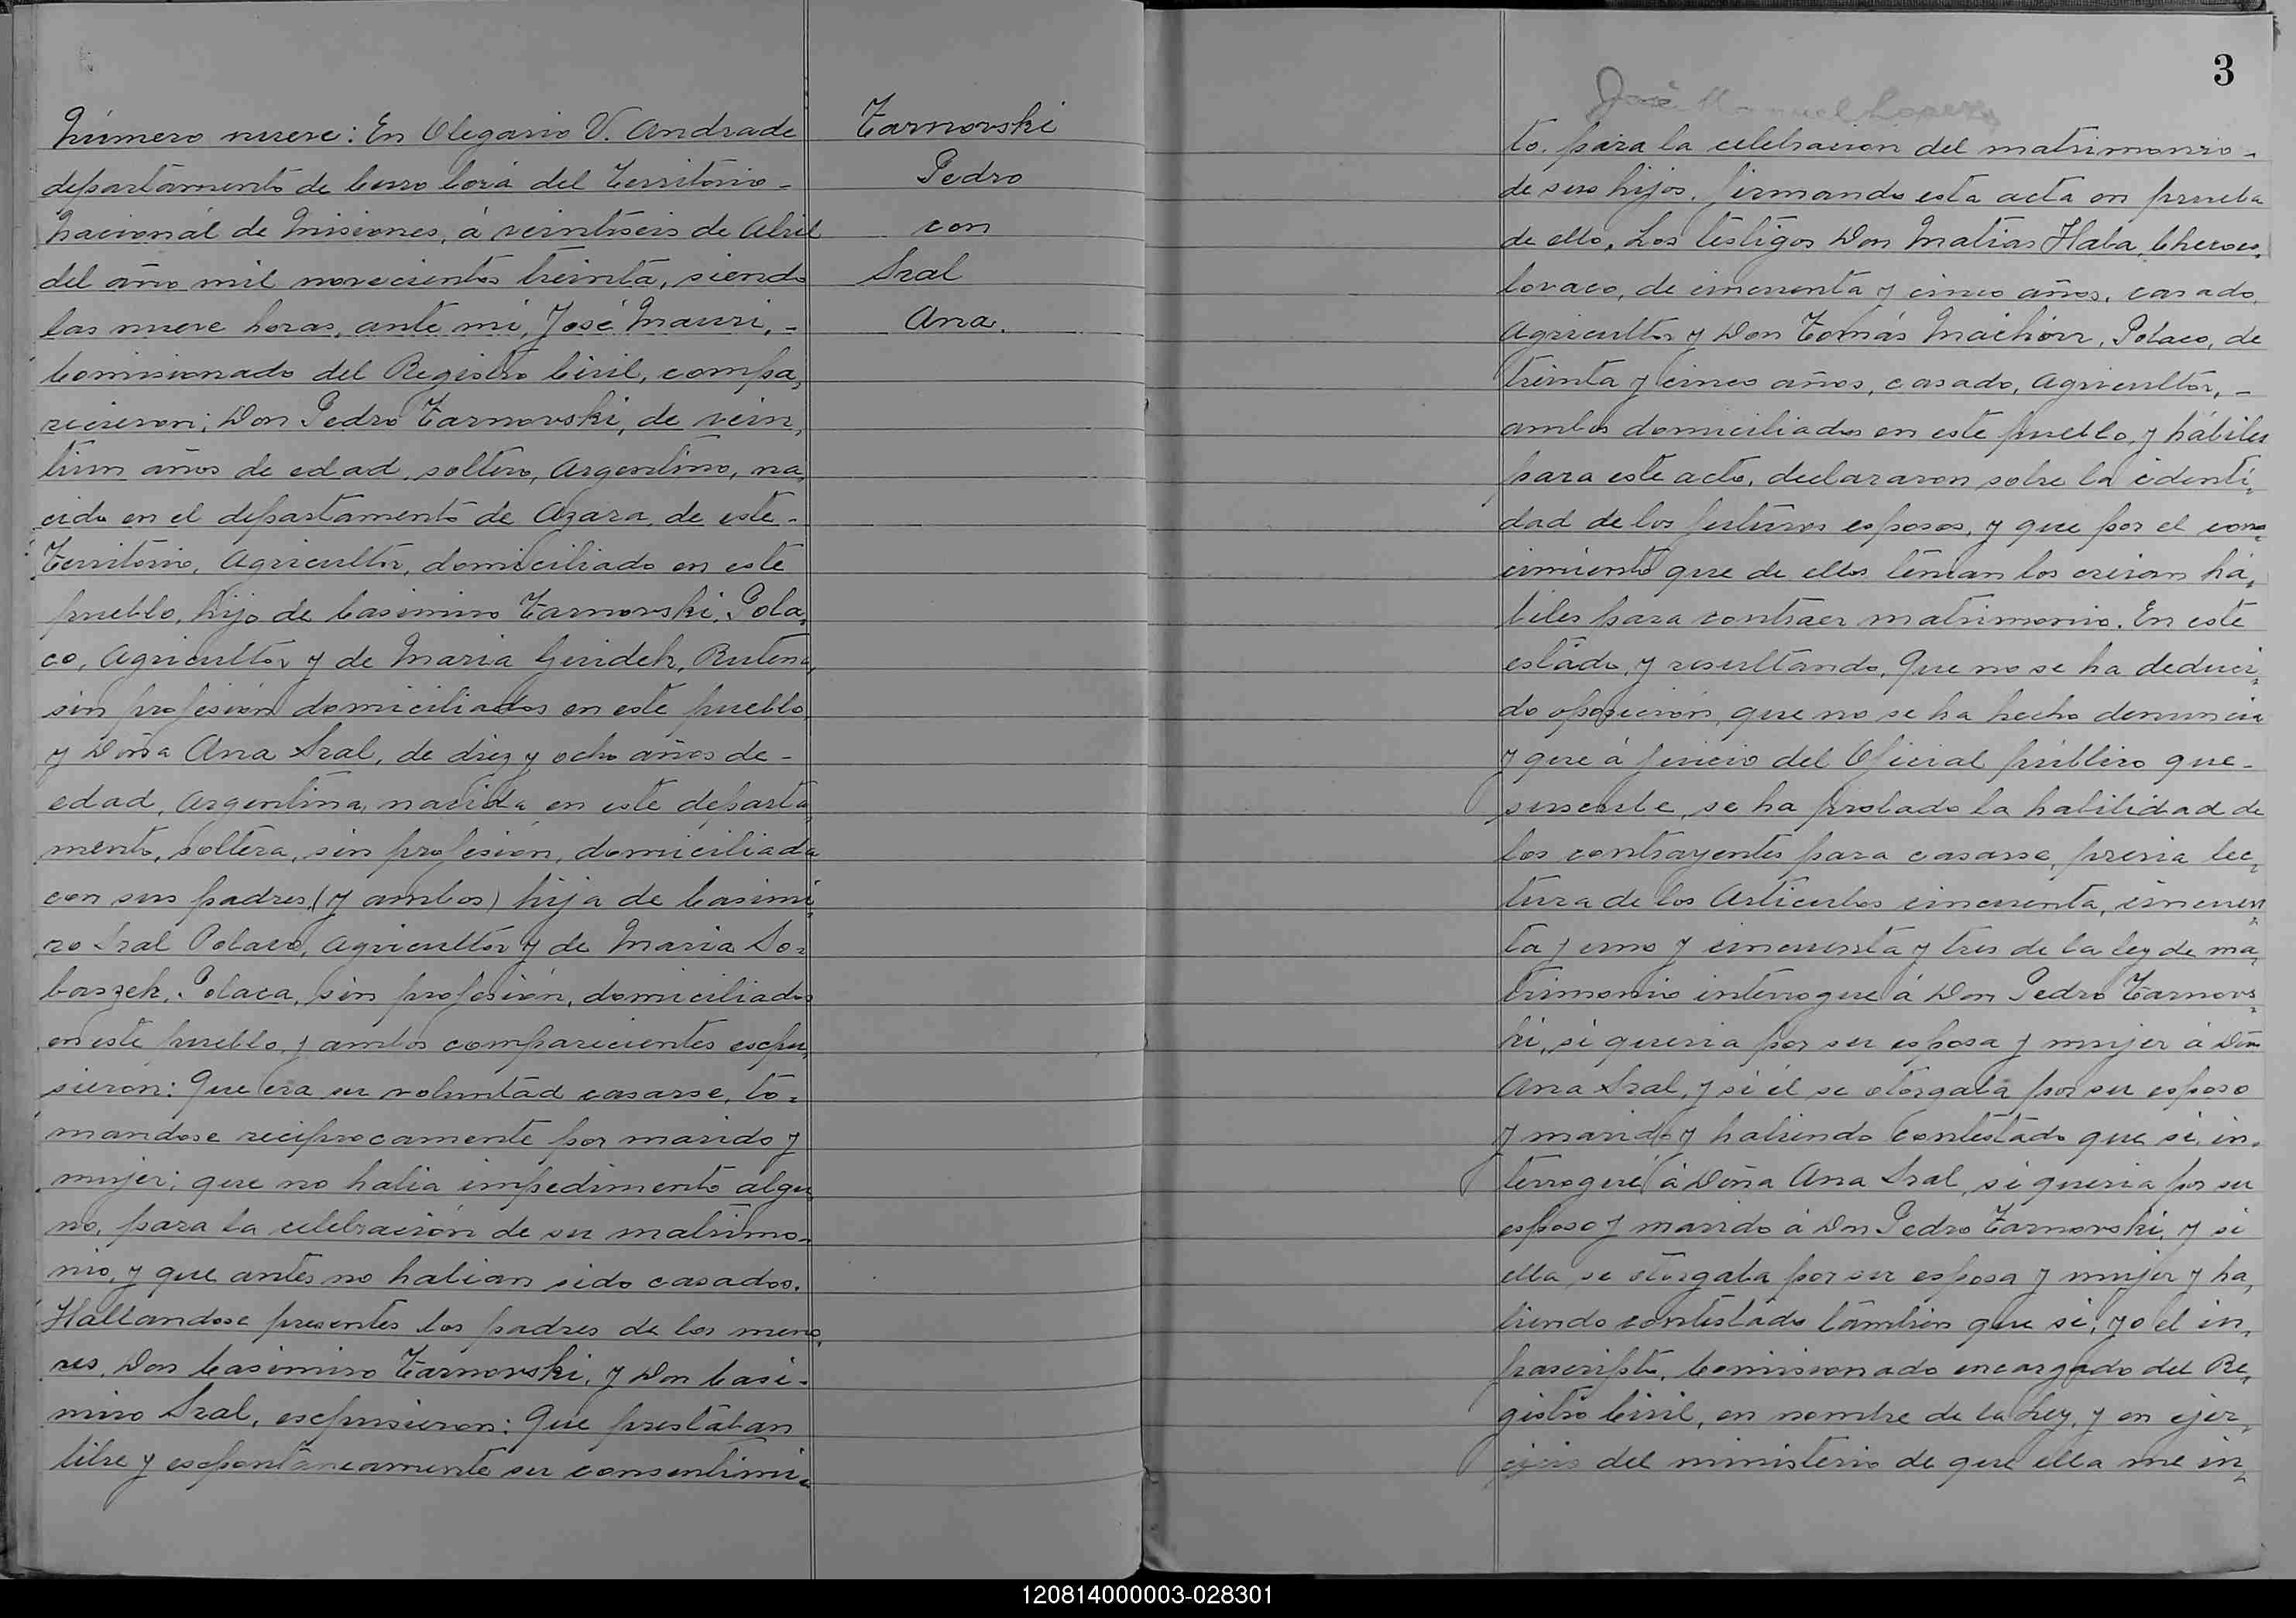 Número nueve: En Olegario V. Andrade
departamento de Cerro Corá del Territorio -
Nacional de Misiones, á veintiseis de Abril
del año mil novecientos treinta, siendo
las nueve horas, ante mi, José Mauri, -
Comisionado del Registro Civil, compa,
recieron; Don Pedro Tarnovski, de vein,
tiun años de edad, soltero, Argentino, na,
cido en el departamento de Azara, de este -
Territorio, Agricultor, domiciliado en este
pueblo, hijo de Casimiro Tarnovski, Pola,
co, Agricultor y de Maria Giridek, Rutena,
sin profesión domiciliados en este pueblo,
y Doña Ana Sral, de diez y ocho años de -
edad, Argentina, nacida en este departa,
mento, soltera, sin profesión, domiciliada
con sus padres, (y ambos) hija de Casimi,
ro Sral Polaco, Agricultor y de Maria So=
baszek, Polaca, sin profesión, domiciliados
en este pueblo, y ambos comparecientes escpu,
sieron: Que era su voluntad casarse, to=
mandose reciprocamente por marido y
mujer; que no habia impedimento algu
no, para la celebración de su matrimo-
nio, y que antes no habian sido casados.
Hallandose presentes los padres de los meno,
res, Don Casimiro Tarnovski, y Don Casi-
miro Sral, escpusieron: Que prestaban
libre y escpontáneamente su consentimi=
Tarnovski
Pedro
con
Sral
Ana.
3
José Manuel Lopez
to. para la celebracion del matrimonio -
de sus hijos, firmando esta acta en prueba
de ello, Los testigos Don Matias Haba, Checoes,
lovaco, de cincuenta y cinco años, casado,
Agricultor y Don Tomás Machiorr, Polaco, de
treinta y cinco años, casado, Agricultor, -
ambos domiciliados en este pueblo, y hábiles
para este acto, declararon sobre la identi,
dad de los futuros esposos, y que por el cono,
cimiento que de ellos tenian los creian há,
biles para contraer matrimonio. En este
estado, y resultando, Que no se ha deduci,
do oposición, que no se ha hecho denuncia
y que á juicio del Oficial público que -
suscribe, se ha probado la habilidad de
los contrayentes para casarse, previa lec,
tura de los Articulos cincuenta, cincuen
ta y uno y cincuenta y tres de la ley de ma,
trimonio interrogué á Don Pedro Tarnovs
ki, si queria por su esposa y mujer á Dña
Ana Sral, y si él se otorgaba por su esposo
y marido y habiendo contestado que si, in,
terrogué á Doña Ana Sral, si queria por su
esposo y marido á Don Pedro Tarnovski, y si
ella se otorgaba por su esposa y mujer y ha,
biendo contestado tambien que si, yo el in,
frascripto, Comisionado encargado del Re,
gistro Civil, en nombre de la Ley, y en ejer,
cicio del ministerio de que ella me in,
120814000003-028301